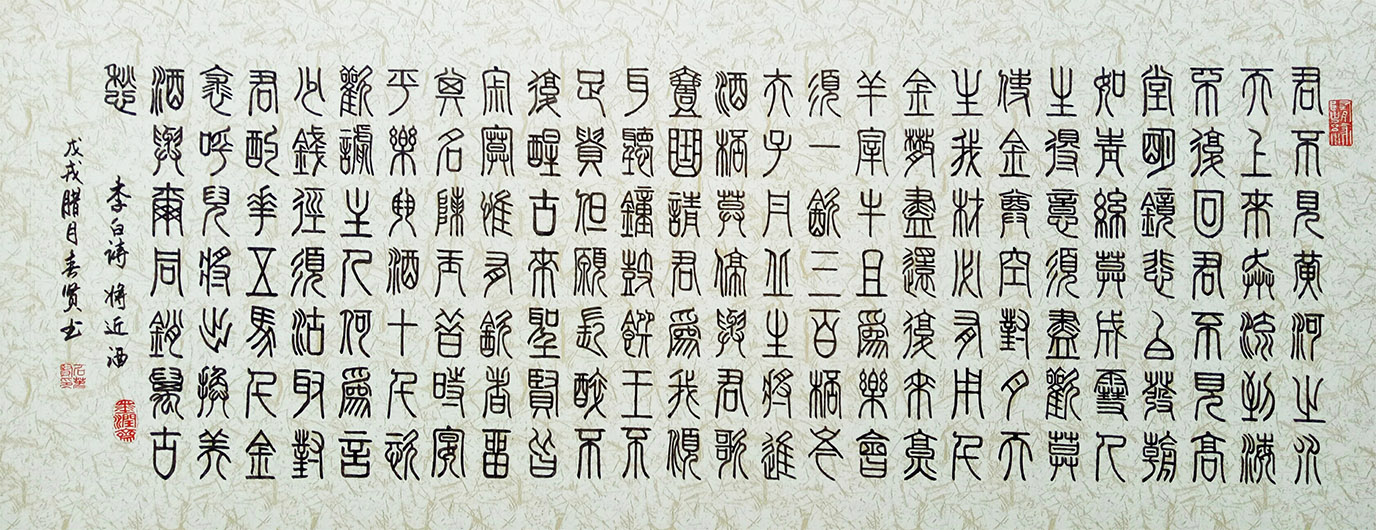 君不見黃河之水
天上來奔流到海
不復回君不見高
堂明鏡悲白發朝
如青絲莫成雪人
生得意須盡歡莫
使金尊空對月天
生我材必有用千
金散盡還復來烹
羊宰牛且爲樂會
須一飲三百桮岑
夫子丹丘生將進
酒桮莫停與君歌
壹曲請君爲我傾
耳聽鐘鼓饌玉不
足貴但願長醉不
復醒古來聖賢皆
寂寞惟有飲者留
其名陳王昔時宴
平樂斗酒十千恣
歡謔主人何爲言
少錢徑須沽取對
君酌花五馬千金
裘呼兒將出換美
酒與爾同銷萬古
愁
李白诗 将近酒
戊戌腊月春贤书